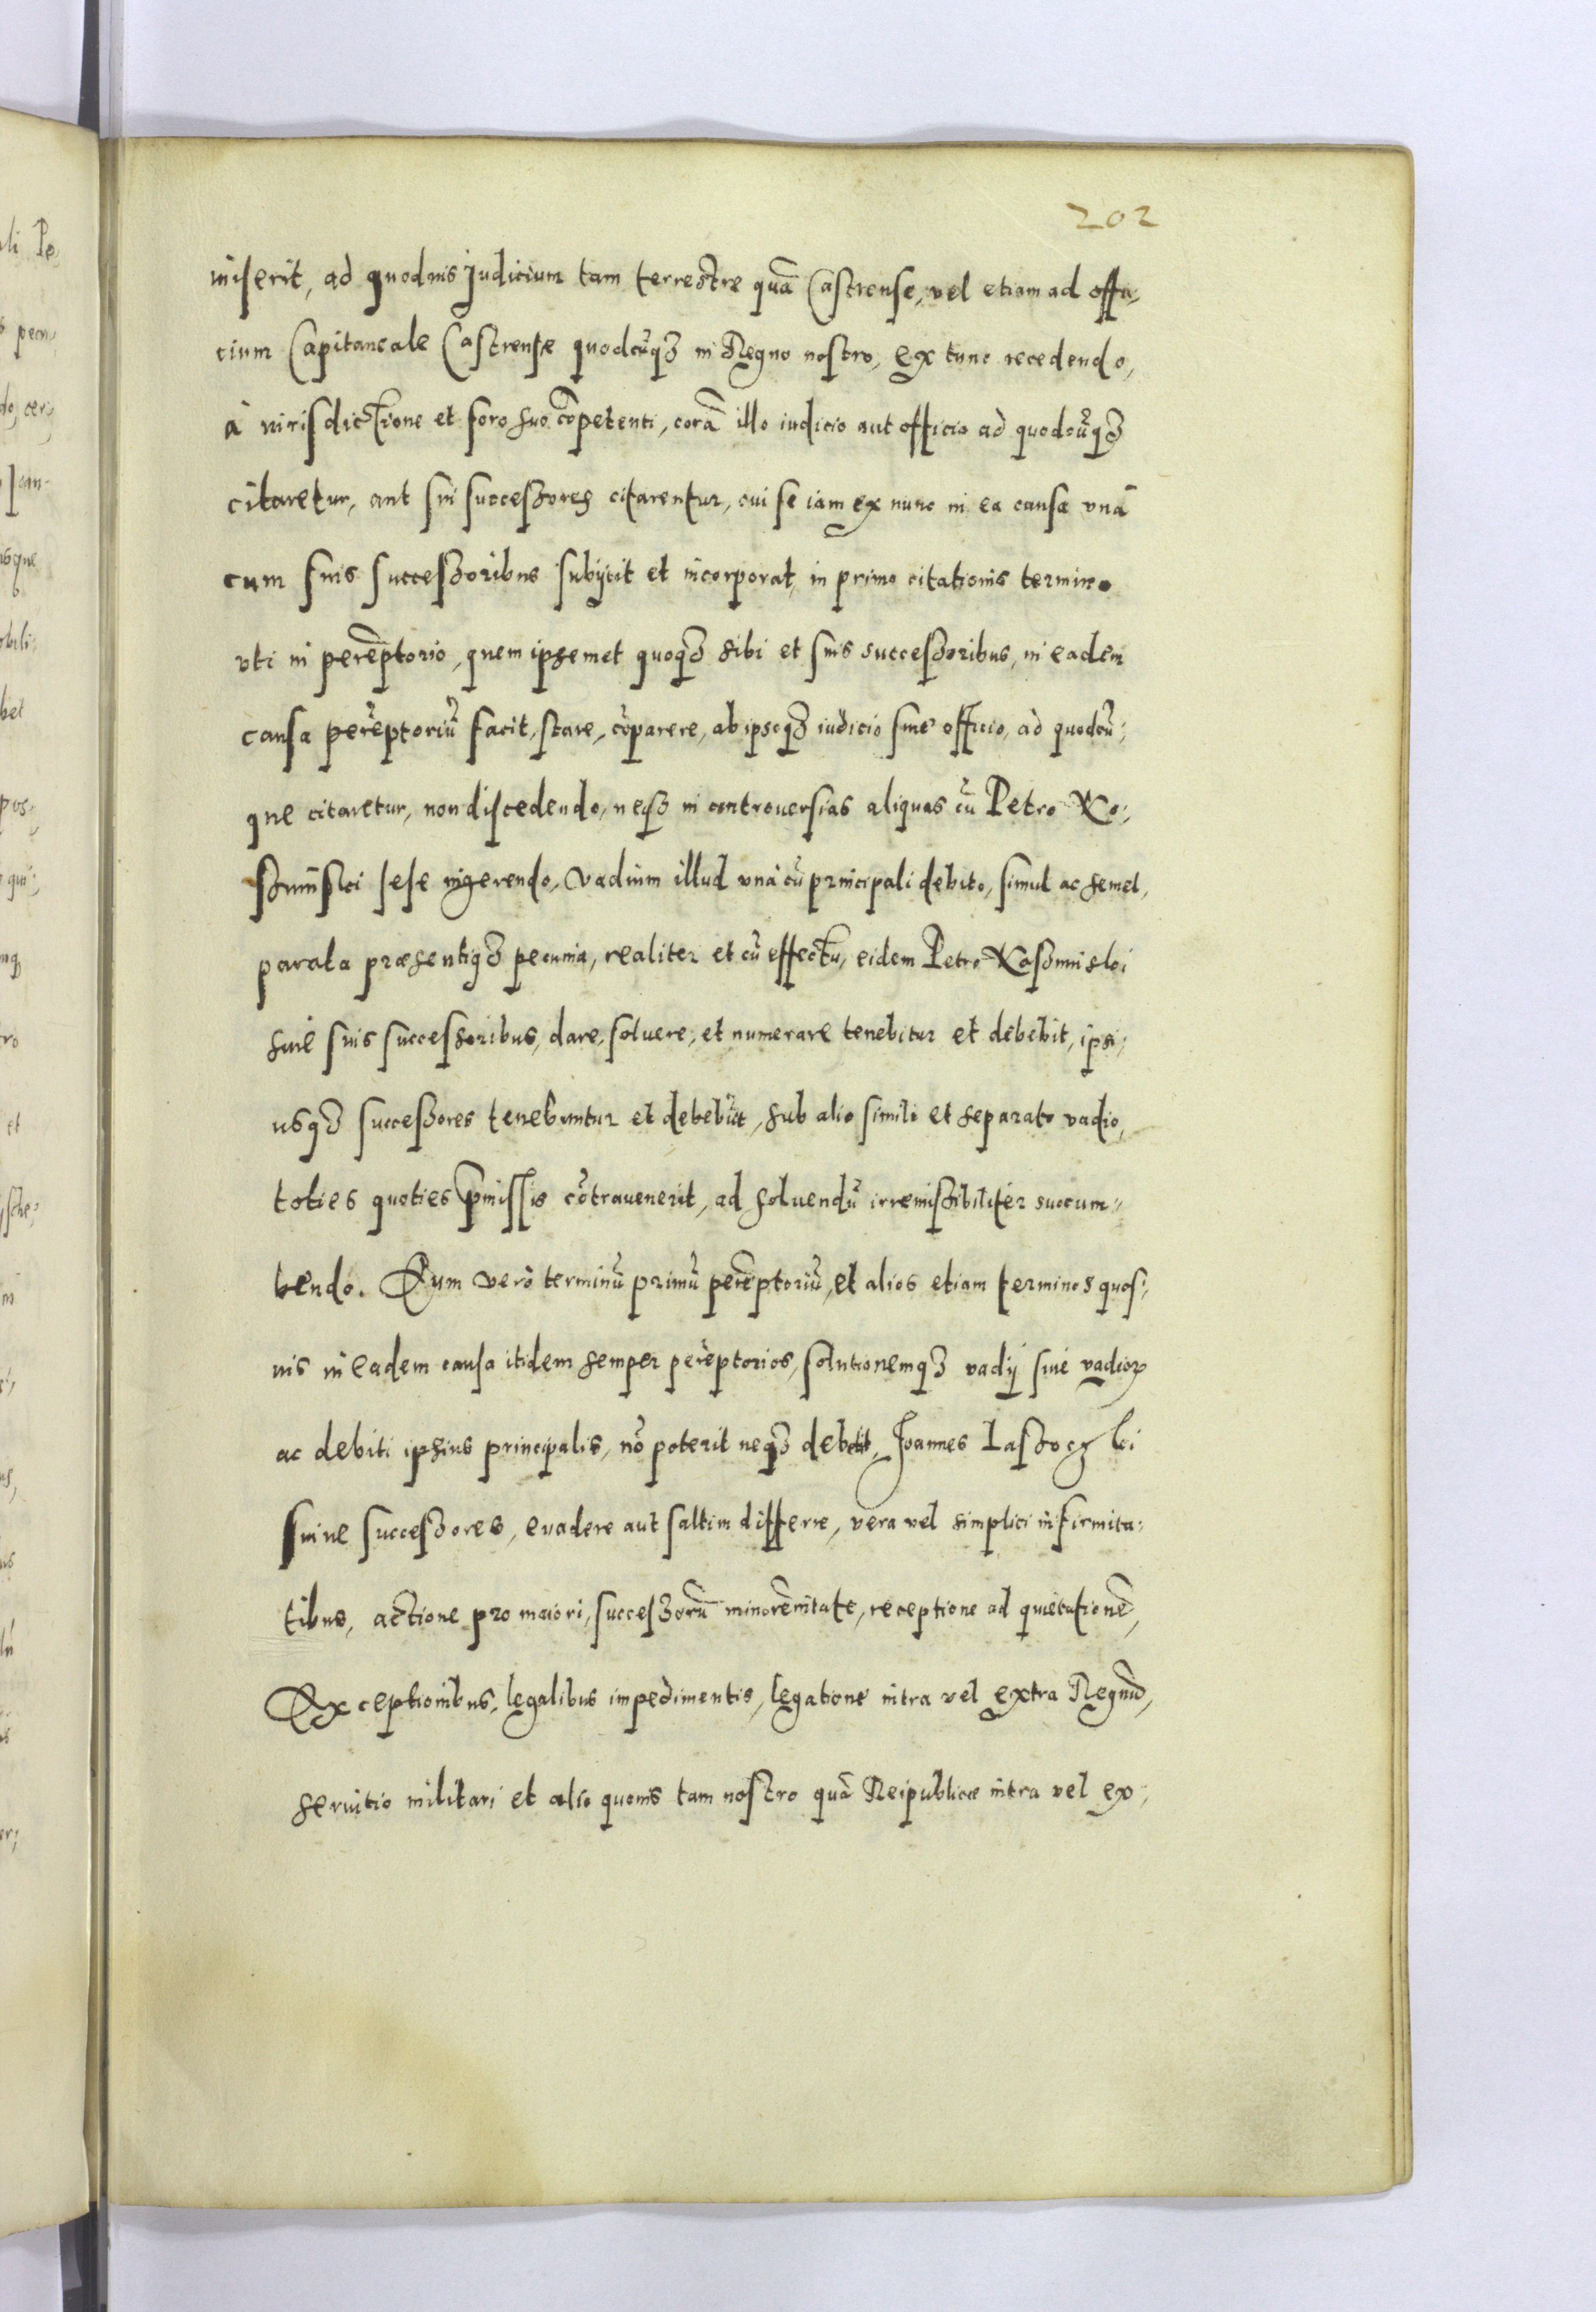 202
miserit, ad quoduis Judicium tam terrestre quã Castrense, vel etiam ad offi,
cium Capitaneale Castrense quodcũqꝫ in Regno nostro, ex tunc recedendo,
à iurisdictione et foro suo cõpetenti, corã illo iudicio aut officio ad quodcũqꝫ
citaretur, aut sui successores citarentur, cui se iam ex nunc in ea causa vnã
cum suis successoribus subijcit et incorporat, in primo citationis termino
vti in perẽptorio, quem ipsemet quoqꝫ sibi et suis successoribus, in eadem
causa perẽptoriũ facit, stare, cõparere, ab ipsoqꝫ iudicio siue officio, ad quodcũ,
que citaretur, non discedendo, neqꝫ in controuersias aliquas cũ Petro Ko,
szminski sese ingerendo, Vadium illud vnà cũ principali debito, simul ac semel,
parata præsentiqꝫ pecunia, realiter et cũ effectu, eidem Petro Koszminski
siue suis successoribus, dare, soluere, et numerare tenebitur et debebit, ipsi,
usqꝫ successores tenebuntur et debebũt, sub alio simili et separato vadio,
toties quoties p̃missis cõtrauenerit, ad soluendũ irremissibiliter succum,
bendo. Eum verò terminũ primũ perẽptoriũ, et alios etiam terminos quos,
uis in eadem causa itidem semper perẽptorios, solutionemqꝫ vadij siue vadioꝝ
ac debiti ipsius principalis, nõ poterit neqꝫ debebit, Joannes Lasoczki
suiue successores, euadere aut saltim differre, vera vel simplici infirmita,
tibus, actione pro maiori, successorũ minorẽnitate, receptione ad quietationẽ,
Exceptionibus, legalibus impedimentis, legatione intra vel extra Regnũ,
seruitio militari et alio quouis tam nostro quã Reipublicæ intra vel ex,